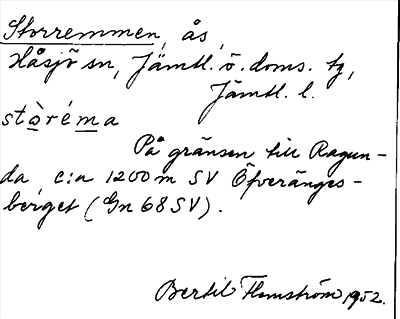 Storremmen, ås,
Håsjö sn, Jämtl. ö. doms. tg,
Jämtl. l.
stòréma
På gränsen till Ragun-
da c:a 1200 m SV Öfveränges-
berget (Gn 68 SV).
Bertil Flemström 1952.